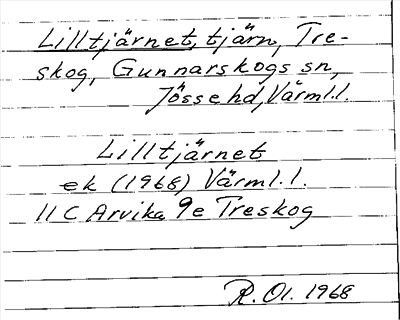 Lilltjärnet, tjärn, Tre-
skog, Gunnarskogs sn,
Jösse hd, Värml.l.
Lilltjärnet
ek (1968) Värml.l.
11 C Arvika 9e Treskog
R. Ol. 1968